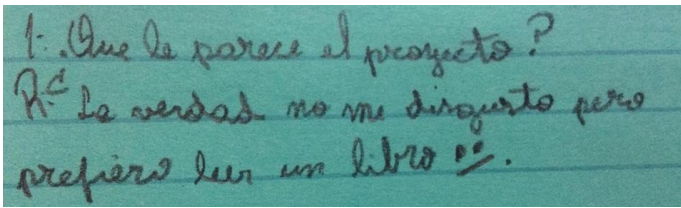 1: Que le parece el proyecto?
R: La verdad no me disgusto pero
prefiero leer un libro